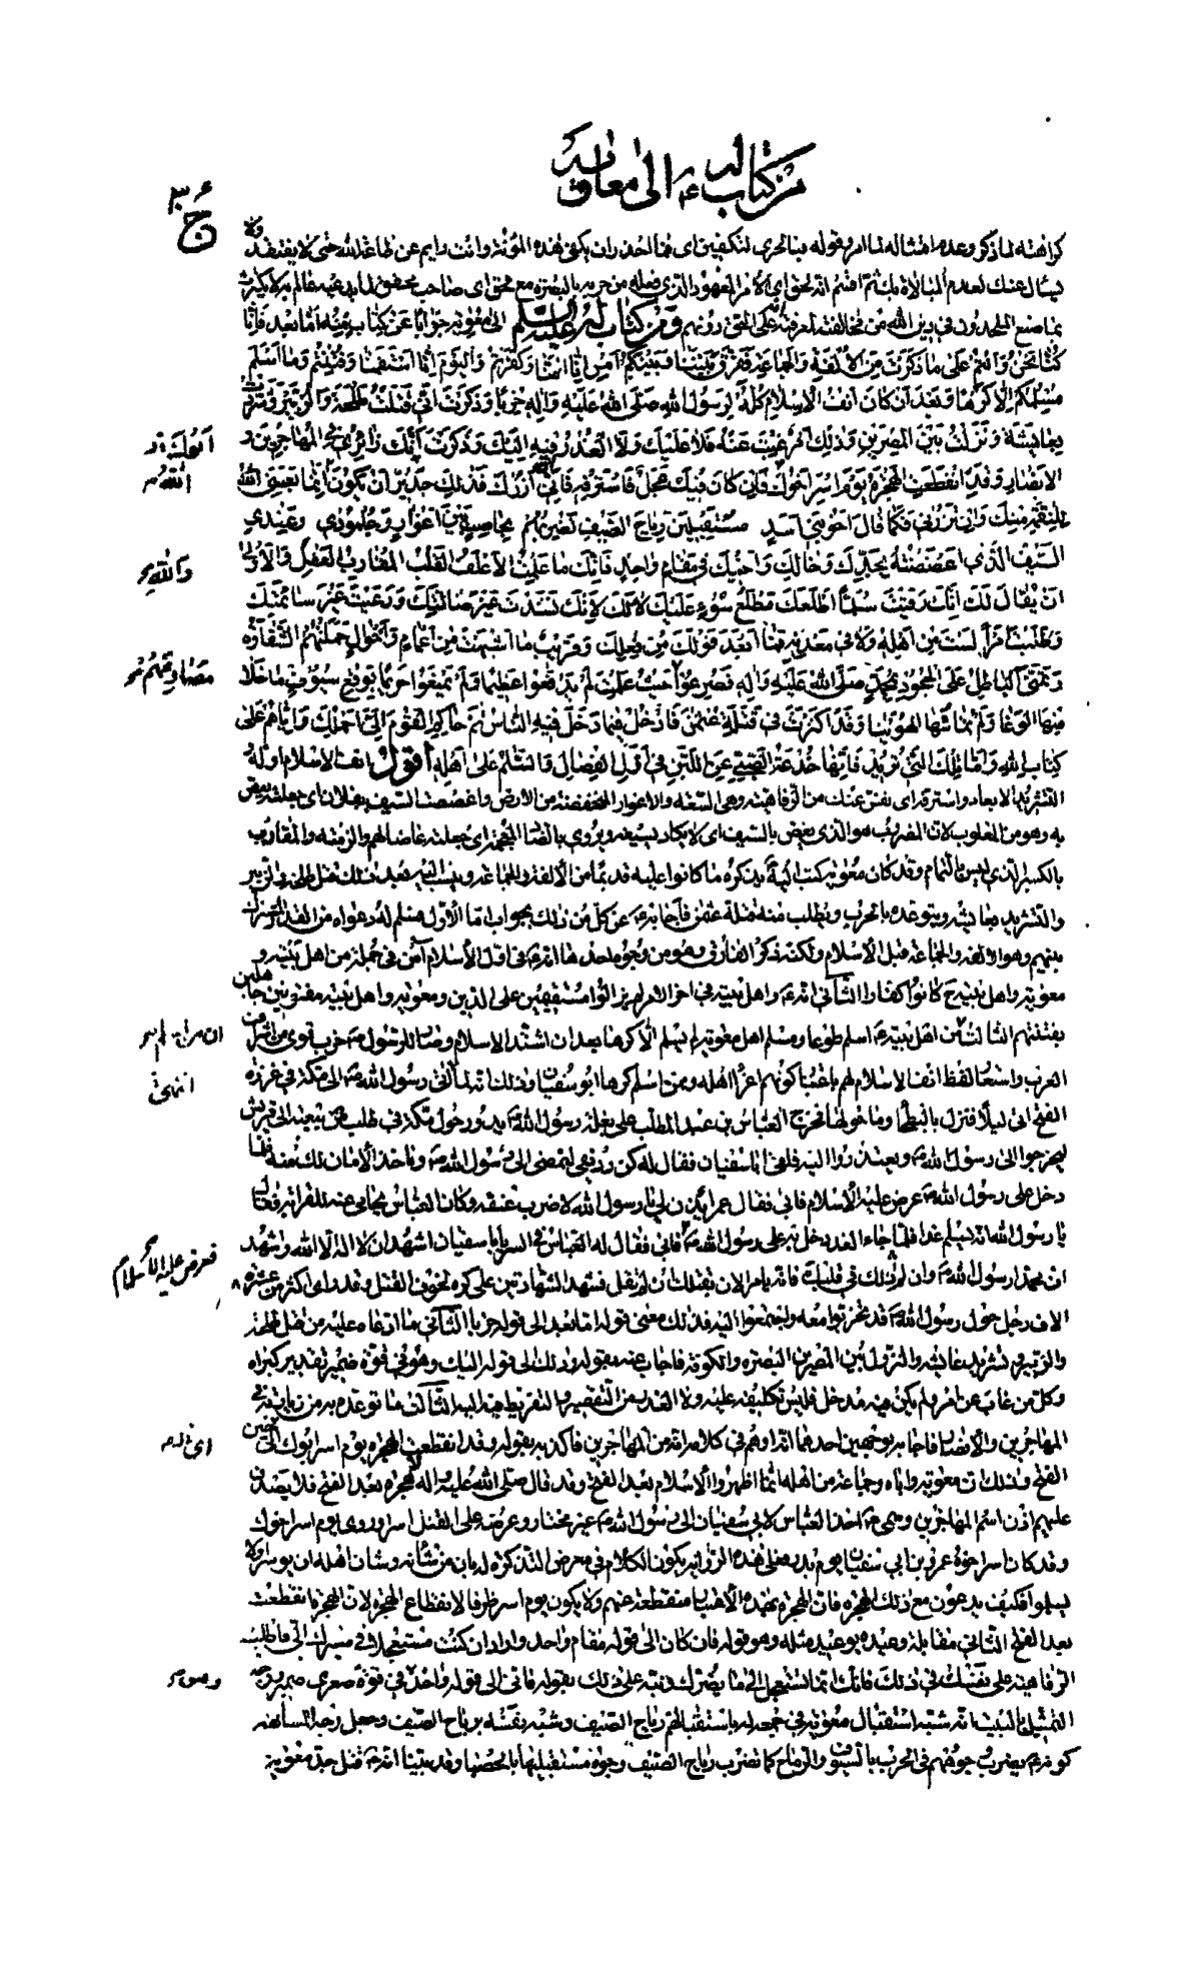 من كتاب له ع الى معاوية
ج ٣
كراهته لما ذكر وعدم امتثاله لما امر وقوله فبالحرى لتكفين اى فما اجدر ان تكفى هذه المؤنة وانت نايم عن طاعة الله حتى لا يفتقدك ولا
يسأل عنك لعدم المبالاة بك ثم اقسم انه لحق اى الامر المعهود الذى فعله من حربه بالبصرة مع محق اى صاحب محقق لما يدعيه عالم به لا يكترث
بما صنع الملحدون فى دين الله من مخالفته لمعرفته انه على الحق دونهم ومن كتاب له عليه السلم الى معوية جوابا عن كتاب منه اما بعد فانا
كنا نحن وانتم على ما ذكرت من الالفة والجماعة ففرق بيننا وبينكم امس انا امنا وكفرتم واليوم انا استقمنا وفتنتم وما اسلم
مسلمكم الا كرها وبعد ان كان انف الاسلام كله لرسول الله صلى الله عليه واله حربا وذكرت انى قتلت طلحة والزبير وشردت
بعايشة ونزلت بين المصرين وذلك امر غبت عنه فلا عليك ولا العذر فيه اليك وذكرت انك زائرى فى المهاجرين و
الانصار وقد انقطعت الهجرة يوم اسر اخوك فان كان فيك عجل فاسترفه فانى ان ازرك فذلك جدير ان يكون الله انما بعثنى
للنقمة منك وان تزرنى فكما قال اخو بنى اسد مستقبلين رياح الصيف تضربهم بحاصب بين اغوار وجلمود وعندى
السيف الذى اعضضته بجدك وخالك واخيك فى مقام واحد فانك ما علمت الاغلف القلب المقارب العقل والاولى
ان يقال لك انك رقيت سلما اطلعك مطلع سوء عليك لا لك لانك نشدت غير ضالتك ورعيت غير سائمتك
وطلبت امرا لست من اهله ولا فى معدنه فما ابعد قولك من فعلك وقريب ما اشبهت من اعمام واخوال حملتهم الشقاوة
وتمنى الباطل على الجحود بمحمد صلى الله عليه واله فصرعوا حيث علمت لم يدفعوا عظيما ولم يمنعوا حريما بوقع سيوف ما خلا
منها الوغا ولم تماشها الهوينا وقد اكثرت فى قتلة عثمن فادخل فيما دخل فيه الناس ثم حاكم القوم الى احملك واياهم على
كتاب الله واما تلك التى تريد فانها خدعة الصبى عن اللبن فى اول الفصال والسلم على اهله اقول انف الاسلام اوله
التشريد الابعاد واسترفه اى نفس عنك من الرفاهية وهى السعة والاغوار المنخفضة من الارض واغصصت السيف بفلان اى جعلته يغص
به وهو من المقلوب لان المضروب هو الذى يغص بالسيف اى لا يكاد يسيغه ويروى بالضاد المعجمة اى جعلته عاضا لهم والزمته والمقارب
بالكسر الذى ليس بالتمام وقد كان معوية كتب اليه يذكره ما كانوا عليه قديما من الالفة والجماعة وينسب اليه بعد ذلك قتل طلحة والزبير
والتشريد بعايشة ويتوعده بالحرب ويطلب منه قتلة عثمن فاجابه ع عن كل من ذلك بجواب اما الاول فسلم له دعواه من القدر المشترك
بينهم وهو الالفة والجماعة قبل الاسلام ولكنه ذكر الفارق وهو من وجوه احدها انه ع فى اول الاسلام آمن فى جملة من اهل بيته و
معوية واهل بيته ح كانوا كفارا الثانى انه ع واهل بيته فى اخر الامر لم يزالوا مستقيمين على الدين ومعوية واهل بيته مفتونين جاهلين
بفتنتهم الثالث ان من اهل بيته ع اسلم طوعا ومسلم اهل معوية لم يسلم الا كرها بعد ان اشتد الاسلام وصار للرسول ص حزب قوى من اشراف
العرب واستعار لفظ انف الاسلام لهم باعتبار كونهم اعز اهله وممن اسلم كرها ابو سفيان وذلك انه لما اتى رسول الله ص الى مكة فى غزوة
الفتح اتى ليلا فنزل بالبطحا وما حولها فخرج العباس بن عبد المطلب على بغلة رسول الله ص يدور حول مكة فى طلب من يبعثه الى قريش
ليخرجوا الى رسول الله ص ويعتذروا اليه فلقى ابا سفيان فقال له كن رديفى لنمضى الى رسول الله ص وناخذ الامان لك منه فلما
دخل على رسول الله ص عرض عليه الاسلام فابى فقال عمر ايذن لى يا رسول الله لاضرب عنقه وكان العباس يحامى عنه للقرابة فقال
يا رسول الله انه يسلم غدا فلما جاء الغد دخل به على رسول الله ص فابى فقال له العباس فى السر يا ابا سفيان اشهد ان لا اله الا الله واشهد
ان محمدا رسول الله ص وان لم يكن ذلك فى قلبك فانه يامر الان بقتلك ان لم تقل فشهد الشهادتين على كره لخوف القتل وقد راى اكثر من عشرة
الاف رجل حول رسول الله ص قد تحزبوا معه واجتمعوا اليه فذلك معنى قوله اما بعد الى قوله حزبا الثانى ما ادعاه عليه من قتل طلحة
والزبير وتشريد عايشة والنزول بين المصرين البصرة والكوفة فاجاب عنه بقوله وذلك الى قوله اليك وهو فى قوة ضمير تقدير كبراه
وكل من غاب عن امر ولم يكن فيه مدخل فليس تكليفه عليه ولا العذر من التقصير والتفريط فيه اليه الثالث ما توعده به من زيارته فى
المهاجرين والانصار فاجابه بوجهين احدهما انه اوهم فى كلامه انه من المهاجرين فاكذبه بقوله وقد انقطعت الهجرة يوم اسر ابوك اى حين
الفتح وذلك ان معوية واباه وجماعة من اهله انما اظهروا الاسلام بعد الفتح وقد قال صلى الله عليه واله لا هجرة بعد الفتح فلا يصدق
عليهم اذن اسم المهاجرين وسمى ع اخذ العباس لابى سفيان الى رسول الله ص غير مختار وعرضه على القتل اسرا وروى يوم اسر اخوك
وقد كان اسر اخوه عمرو بن ابى سفيان يوم بدر فعلى هذه الرواية يكون الكلام فى معرض التذكرة له بان من شانه وشان اهله ان يوسروا ولا
يسلموا فكيف يدعون مع ذلك الهجرة فان الهجرة بهذا الاعتبار منقطعة عنهم ولا يكون يوم اسر ظرفا لانقطاع الهجرة لان الهجرة انقطعت
بعد الفتح الثانى مقابلة وعيده بوعيد مثله وهو قوله فان كان الى قوله مقام واحد واراد ان كنت مستعجلا فى مسيرك الى فاطلب
الرفاهية على نفسك فى ذلك فانك انما تستعجل الى ما يضرك ونبه على ذلك بقوله فانى الى قوله واخذ فى قوة صغرى ضمير وجه
التمثيل بالبيت انه شبه استقبال معوية فى جمعه له باستقبالهم رياح الصيف وشبه نفسه برياح الصيف وجعل وجه المشابهة
كونه ع يضرب وجوههم فى الحرب بالسيوف والرماح كما تضرب رياح الصيف وجوه مستقبليها بالحصبا وقد بينا انه ع قتل جد معوية